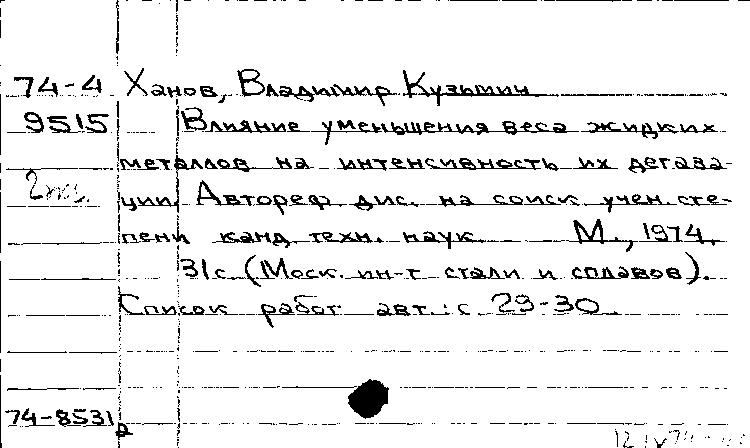 74-4 Ханов, Владимир Кузьмич
9515 Влияние уменьшения веса жидких
металлов на интенсивность их дегаза-
2 экз. ции. Автореф. дис. на соиск. учен. сте-
пени канд. техн. наук. М., 1974.
31с. (Моск. ин-т стали и сплавов).
Список работ авт.: с. 29-30.
74-8531а